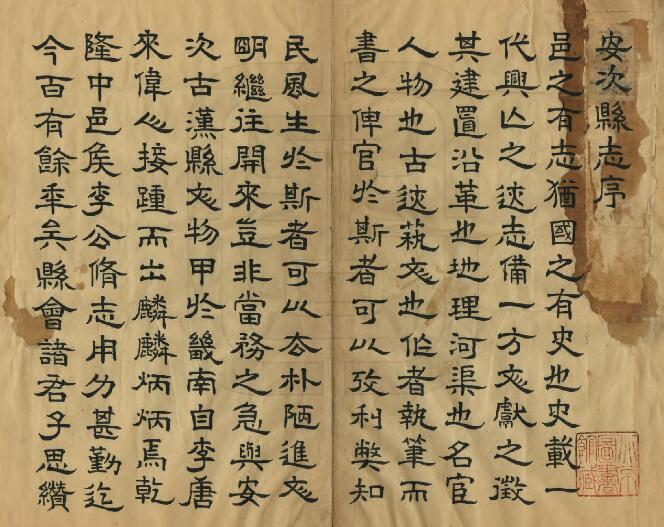 安次縣志序
邑之有志猶國之有史也史載一
代興亾之迹志備一方文獻之徵
其建置沿革也地理河渠也名宦
人物也古迹蓺文也作者執筆而
書之俾官於斯者可以攷利弊知
民風生於斯者可以去朴陋進文
明繼往開來豈非當務之急與安
次古漢縣文物甲於畿南自李唐
來偉人接踵而出麟麟炳炳焉乾
隆中邑矦李公脩志用力甚勤迄
今百有餘年矣縣會諸君子思纘
北京圖書館藏